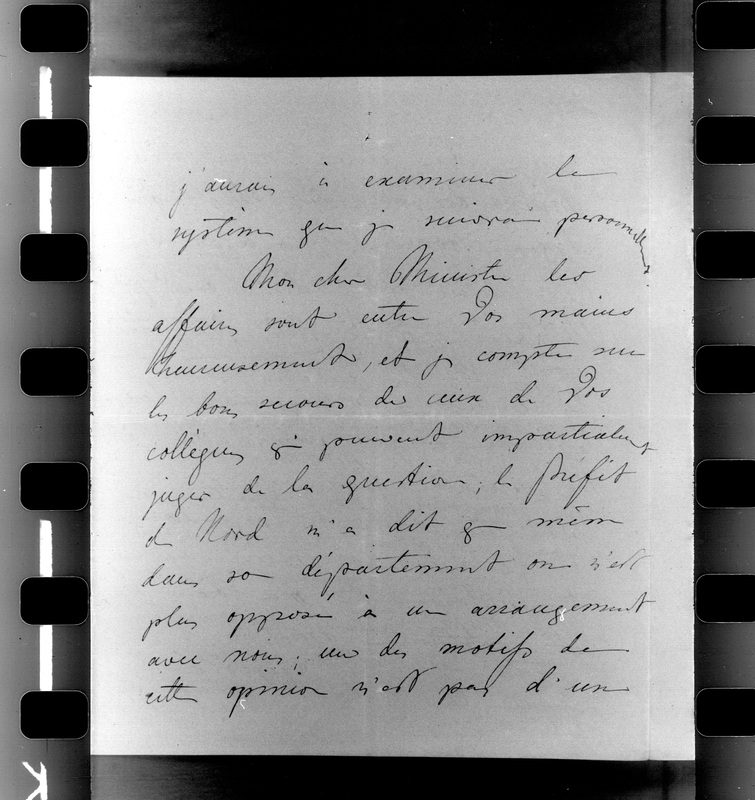 j'aurai à examiner le
système que je suivrai personnellement.
Mon cher Ministre les
affaires sont entre Vos mains
heureusement, et je compte sur
les bons secours de ceux de Vos
collègues qui peuvent impartialement
juger de la question; le Préfet
du Nord m'a dit que même
dans son département on n'est
plus opposé à un arrangement
avec nous; un des motifs de
cette opinion n'est pas d'un